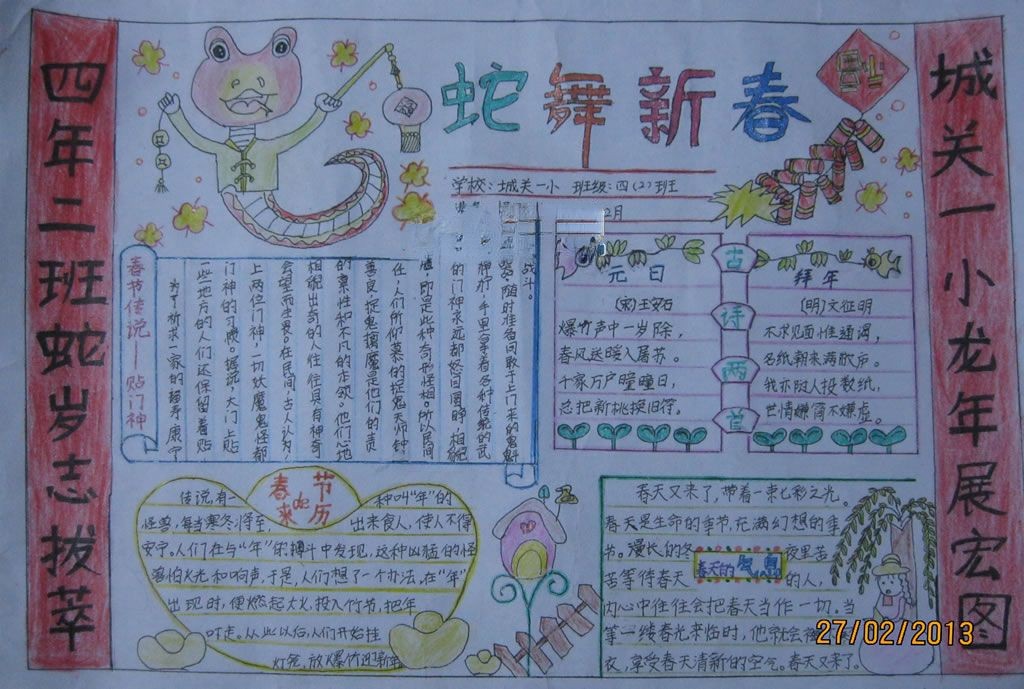 蛇舞新春
城关一小龙年展宏图
四年二班蛇岁志拔萃
学校：城关一小 班级：四(2)班
2月
春节传说——贴门神
为了祈求一家的福寿康宁
一些地方的人们还保留着贴
门神的习惯。据说，大门上贴
上两位门神，一切妖魔鬼怪都
会望而生畏。在民间，古人认为，
相貌出奇的人往往具有神奇
的禀性和不凡的本领。他们心地
善良，捉鬼擒魔是他们的责
任，人们所仰慕的捉鬼天师钟
馗，即是此种奇形怪相。所以民间
的门神永远都怒目圆睁，相貌
狰狞，手里拿着各种传统的武
随时准备同敢于上门来的鬼魅
战斗。
古诗两首
元日
(宋)王安石
爆竹声中一岁除，
春风送暖入屠苏。
千家万户曈曈日，
总把新桃换旧符。
拜年
(明)文征明
不求见面惟通谒，
名纸朝来满敝庐。
我亦随人投数纸，
世情嫌简不嫌虚。
春节的来历
传说，有一种叫“年”的
怪兽，每当寒冬将至，出来食人，使人不得
安宁。人们在与“年”的搏斗中发现，这种凶猛的怪
害怕火光和响声，于是，人们想了一个办法，在“年”
出现时，便燃起大火，投入竹节，把年
吓走。从此以后，人们开始挂
灯笼，放爆竹迎新年
春天的气息
春天又来了，带着一束七彩之光。
春天是生命的季节，充满幻想的季
节。漫长的冬夜里苦
苦等待春天的人，
内心中往往会把春天当作一切。当
第一缕春光来临时，他就会
衣，享受春天清新的空气。春天又来了。
27/02/2013